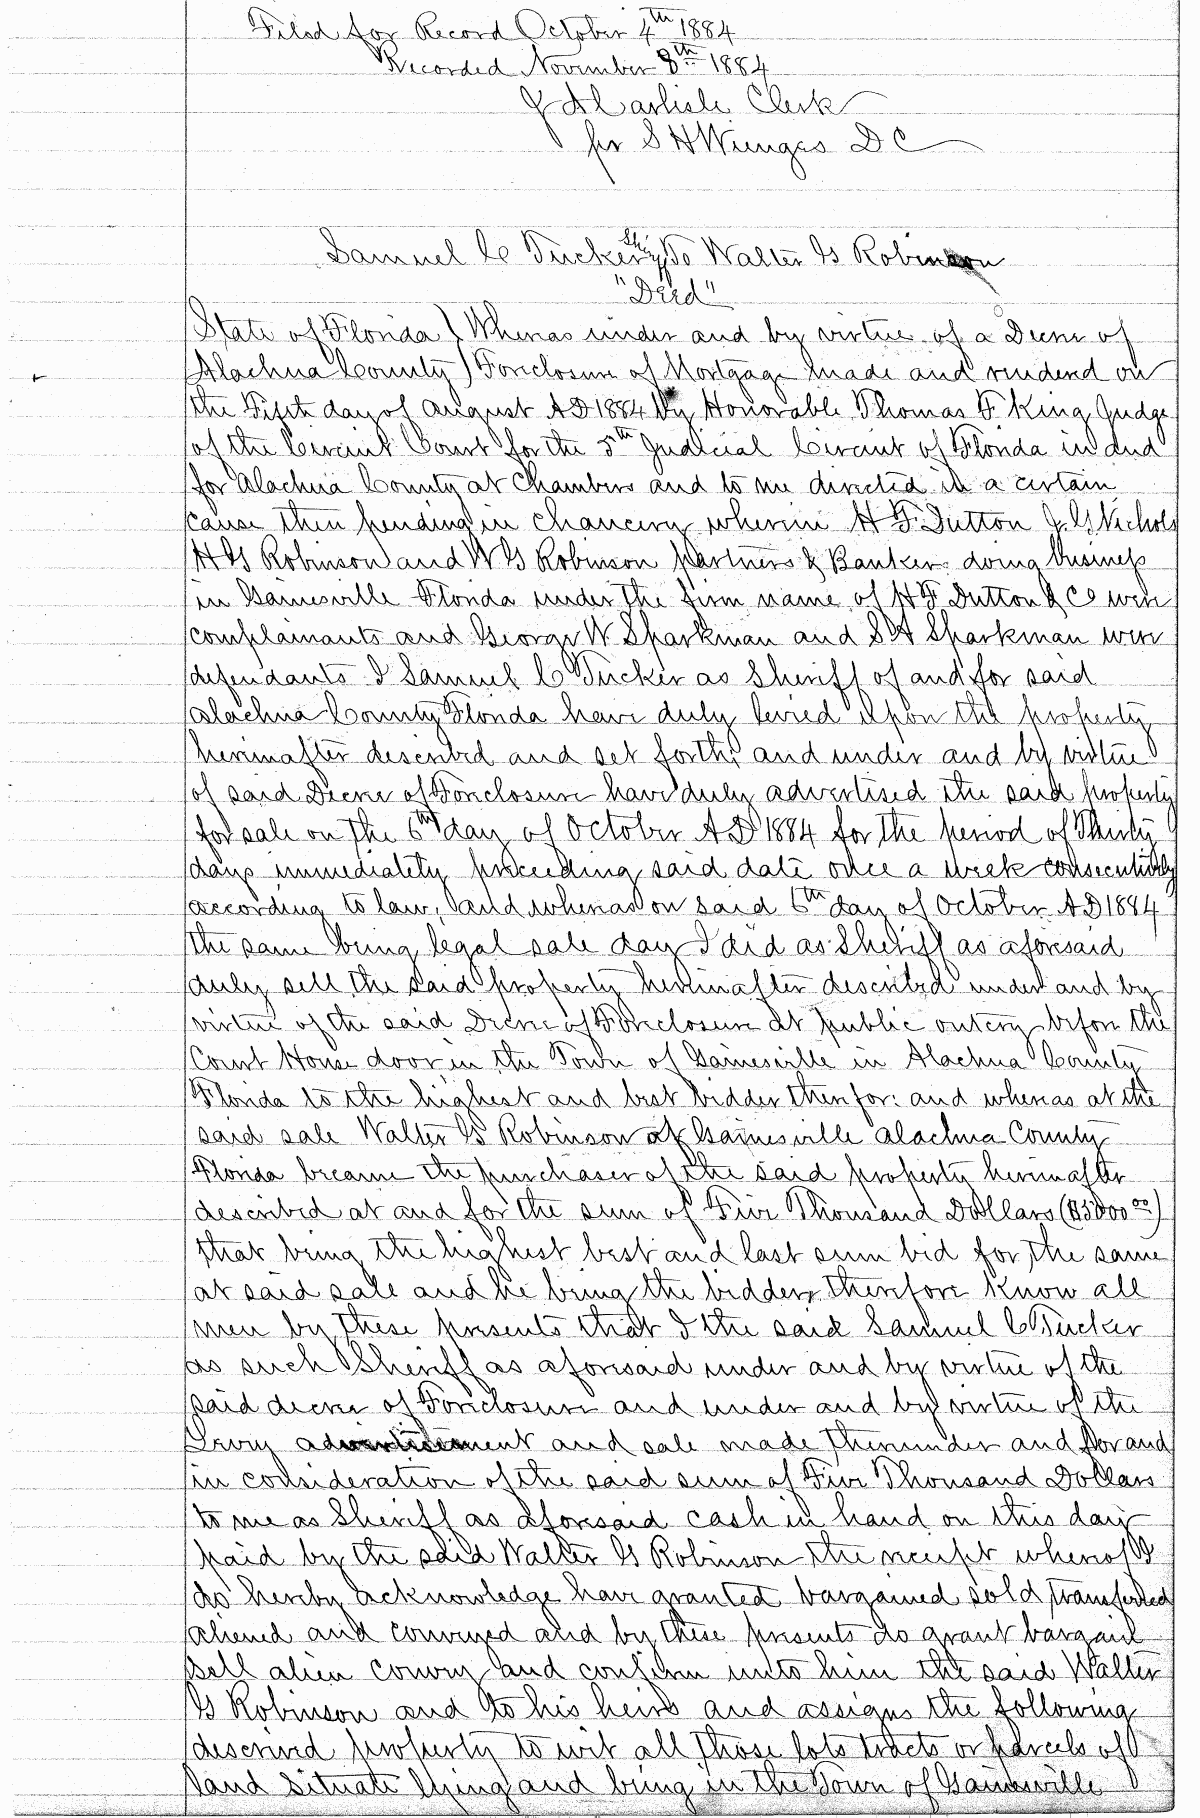 Filed for Record October 4th 1884
Recorded November 8th 1884
J A Carlisle Clerk
pr S H Wienges D C
Samuel C Tucker Shff To Walter G Robinson
"Deed"
State of Florida } Whereas under and by virtue of a Decree of
Alachua County } Foreclosure of Mortgage made and rendered on
the Fifth day of August A D 1884 by Honorable Thomas F King Judge
of the Circuit Court for the 5th Judicial Circuit of Florida in and
for Alachua County at Chambers and to me directed in a certain
cause then pending in Chancery wherein H F Dutton J. G Nichols
H G Robinson and W G Robinson partners & Bankers doing business
in Gainesville Florida under the firm name of H F Dutton & Co were
complainants and George W Sparkman and S A Sparkman were
defendants I Samuel C Tucker as Sheriff of and for said
Alachua County Florida have duly levied upon the property
hereinafter described and set forth; and under and by virtue
of said Decree of Foreclosure have duly advertised the said property
for sale on the 6th day of October A D 1884 for the period of Thirty
days immediately preceeding said date once a week consecutively
according to law; and whereas on said 6th day of October A D 1884
the same being legal sale day I did as Sheriff as aforesaid
duly sell the said property hereinafter described under and by
virtue of the said Decree of Foreclosure at public outcry before the
Court House door in the Town of Gainesville in Alachua County
Florida to the highest and best bidder therefor: and whereas at the
said sale Walter G Robinson of Gainesville Alachua County
Florida became the purchaser of the said property hereinafter
described at and for the sum of Five Thousand Dollars ($5000 00)
that being the highest best and last sum bid for the same
at said sale and he being the bidder, therefore Know all
men by these presents that I the said Samuel C Tucker
as such Sheriff as aforesaid under and by virtue of the
said decree of Foreclosure and under and by virtue of the
Levy advertisement and sale made thereunder and for and
in consideration of the said sum of Five Thousand Dollars
to me as Sheriff as aforesaid cash in hand on this day
paid by the said Walter G Robinson the receipt whereof I
do hereby acknowledge have granted bargained sold transferred
aliened and conveyed and by these presents do grant bargain
sell alien convey and confirm unto him the said Walter
G Robinson and to his heirs and assigns the following
described property to wit all those lots tracts or parcels of
land situate lying and being in the Town of Gainesville